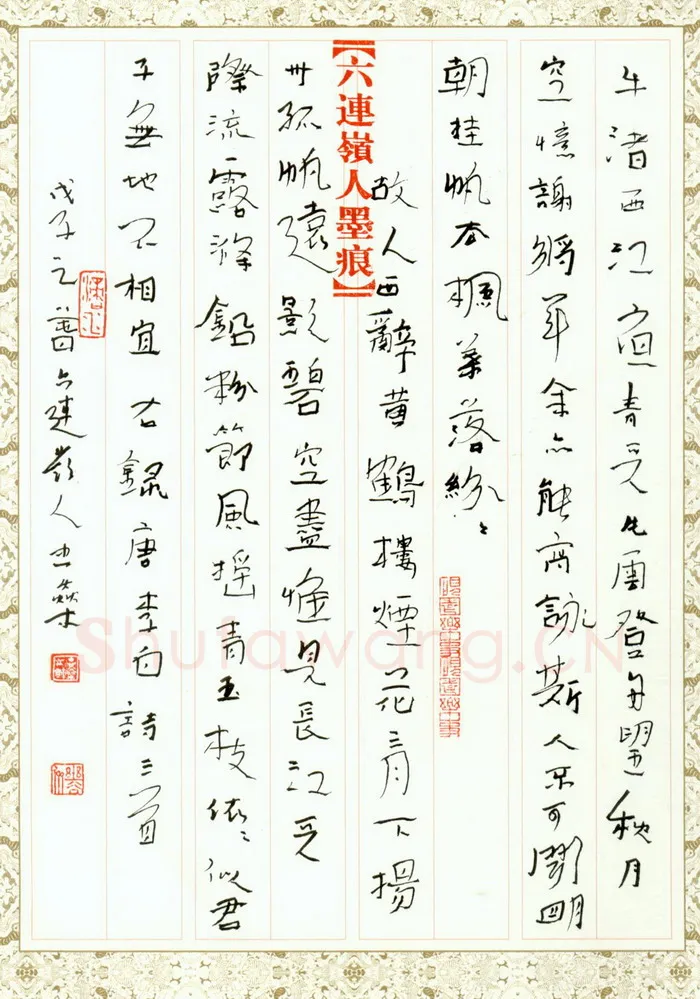 牛渚西江夜青天片雲登舟望秋月
空憶謝將軍余亦能高詠斯人不可聞明
朝挂帆去楓葉落紛々
【六連嶺人墨痕】
故人西辭黄鶴樓煙花三月下揚
州孤帆遠影碧空盡惟見長江天
際流露滌鉛粉節風摇青玉枝依々似君
子無地不相宜右録唐李白詩三首
戊子之春六連嶺人
Shufawang.CN